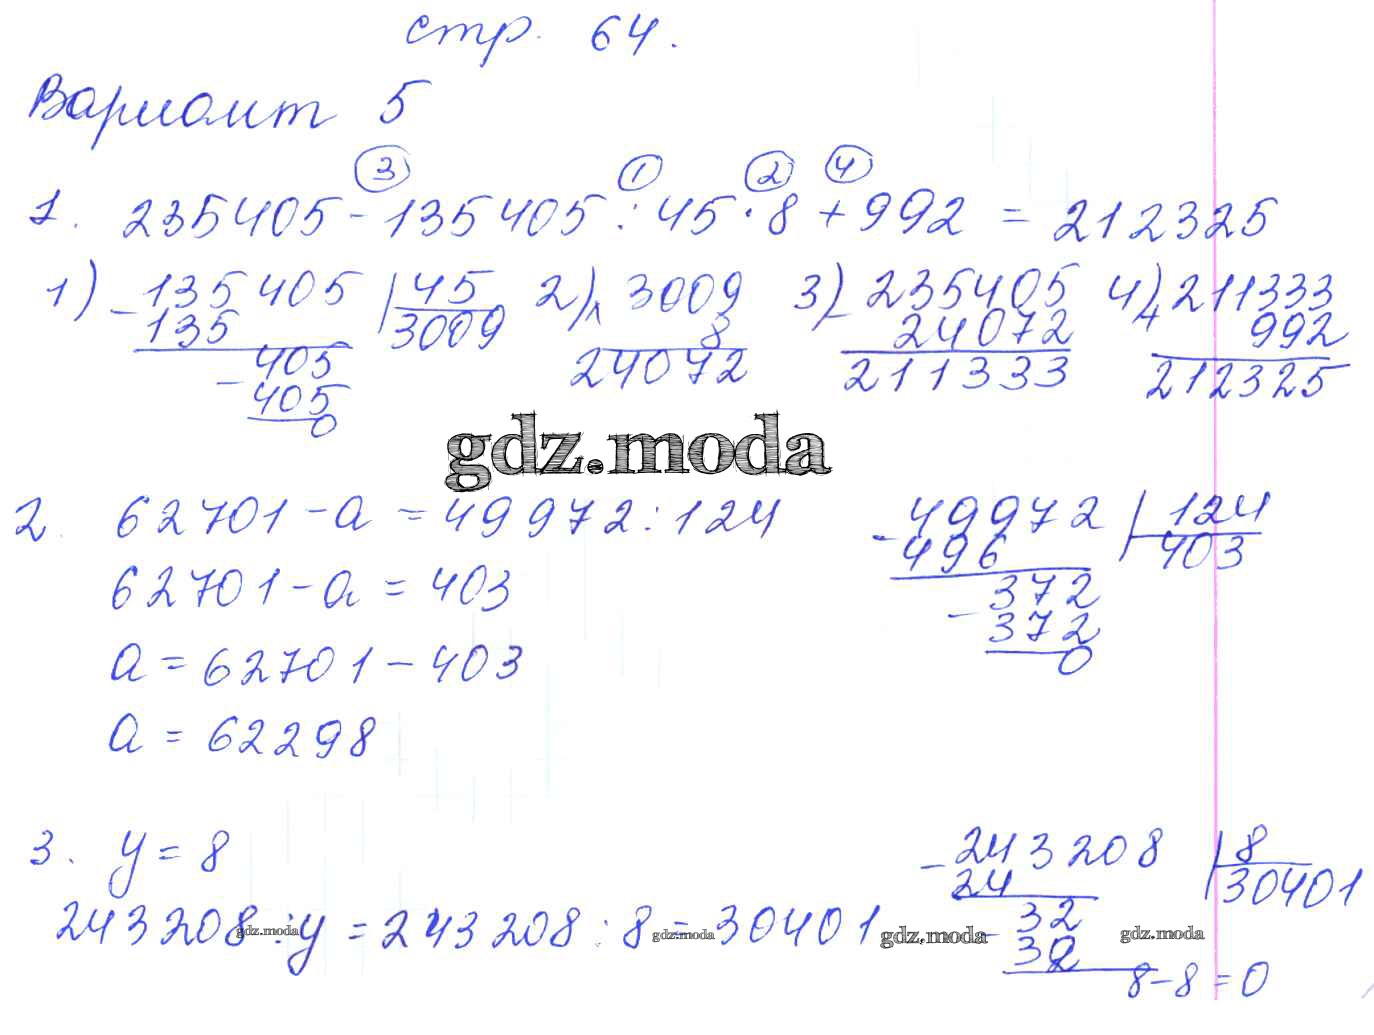 стр. 64.
Вариант 5
3 1 2 4
1. 235405 - 135405 : 45 · 8 + 992 = 212325
1) - 135405 | 45 2) × 3009 3) - 235405 4) + 211333
135 3009 8 24072 992
405 24072 211333 212325
- 405
0
gdz.moda
2. 62701 - а = 49972 : 124 - 49972 | 124
496 403
62701 - а = 403 372
- 372
а = 62701 - 403 0
а = 62298
3. у = 8 - 243208 | 8
24 30401
243208 : у = 243208 : 8 = 30401 - 32
gdz.moda gdz.moda gdz.moda gdz.moda
32
8 - 8 = 0